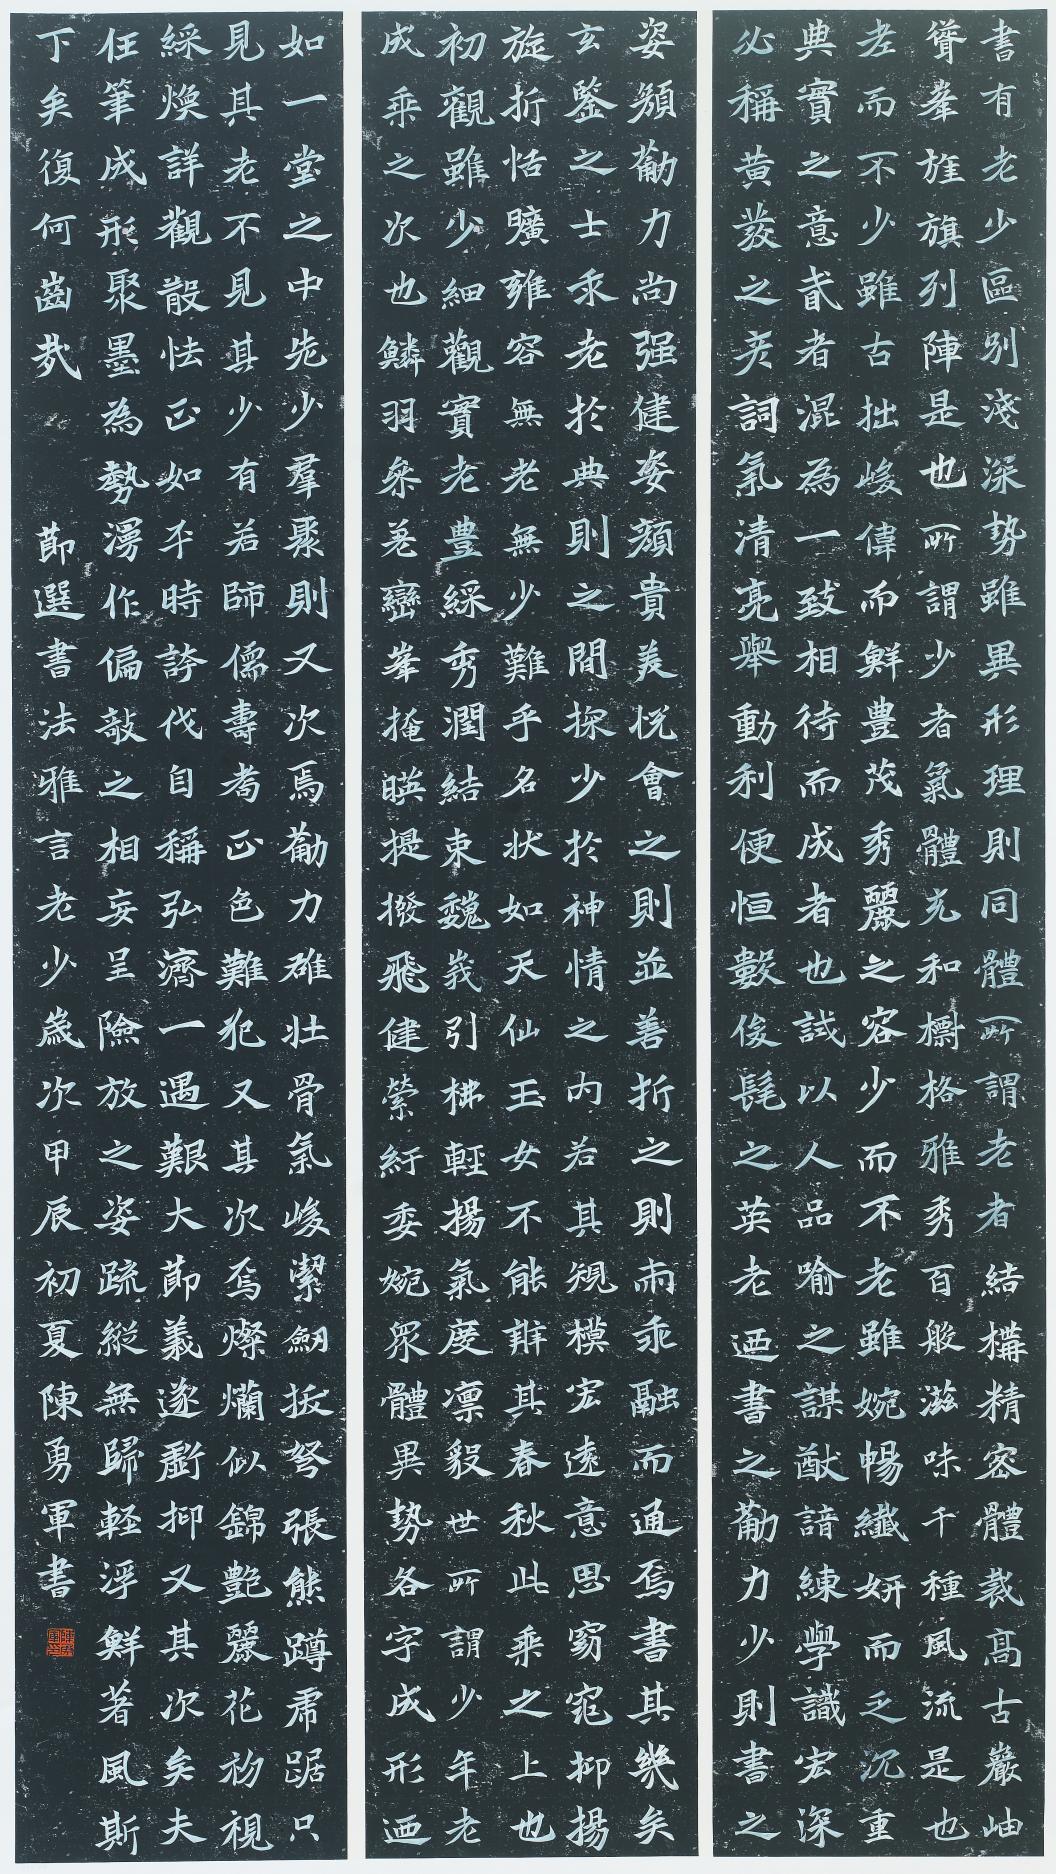 書有老少區別淺深勢雖異形理則同體所謂老者結構精密體裁高古巖岫
聳峯旌旗列陣是也所謂少者氣體充和標格雅秀百般滋味千種風流是也
老而不少雖古拙峻偉而鮮豊茂秀麗之容少而不老雖婉暢纖妍而乏沉重
典實之意貳者混為一致相待而成者也試以人品喻之謀猷諳練學識宏深
必稱黃髮之彥詞氣清亮舉動利便恒數俊髦之英老迺書之勈力少則書之
姿顏勈力尚强健姿顏貴美悅會之則並善折之則兩乖融而通焉書其幾矣
玄鑒之士求老於典則之間探少於神情之內若其規模宏遠意思窈窕抑揚
旋折恬曠雍容無老無少難乎名狀如天仙玉女不能辨其春秋此乘之上也
初觀雖少細觀實老豊綵秀潤結束巍峩引拂輕揚氣度凛毅世所謂少年老
成乘之次也鱗羽參差巒峯掩暎提撥飛健縈紆委婉眾體異勢各字成形迺
如一堂之中老少羣聚則又次焉勈力雄壯骨氣峻潔劒拔弩張熊蹲虎踞只
見其老不見其少有若師儒壽耇正色難犯又其次焉燦爛似錦艷麗花初視
綵煥詳觀散怯正如平時誇伐自稱弘濟一遇艱大節義遂虧抑又其次矣夫
任筆成形聚墨為勢漫作偏敧之相妄呈險放之姿疏縱無歸軽浮鮮著風斯
下矣復何齒㢤 節選書法雅言老少歲次甲辰初夏陳勇軍書